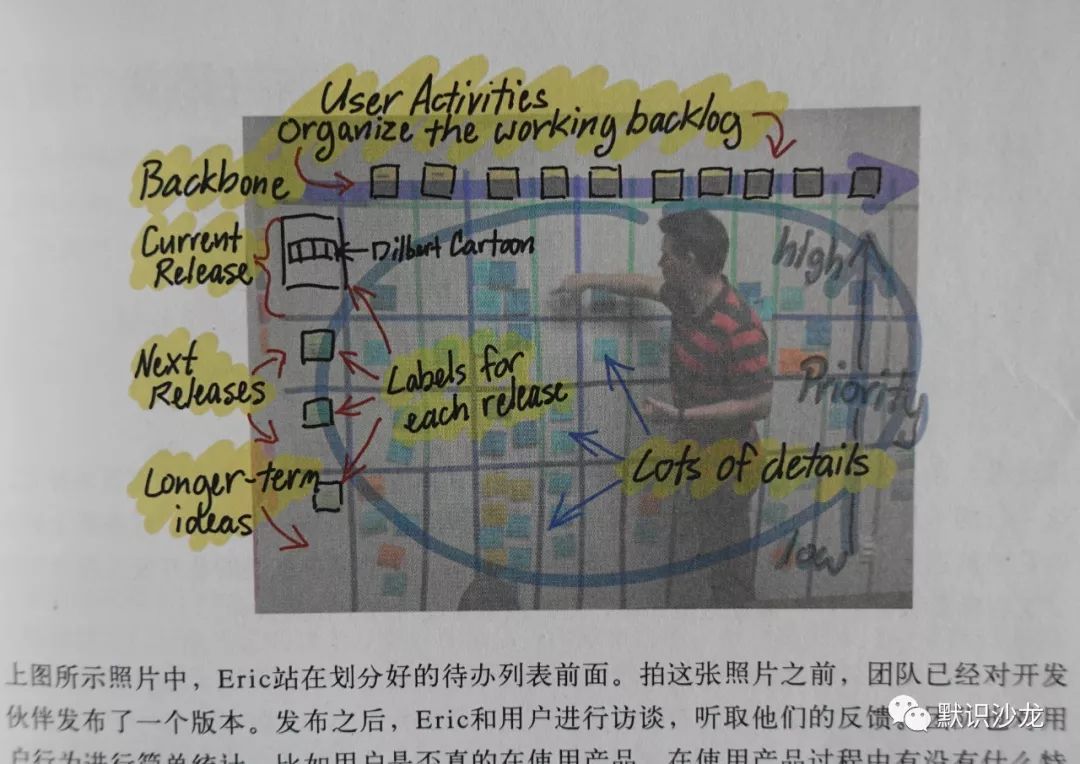 User Activities
organize the working backlog
Backbone
Current
Release
Dilbert Cartoon
high
Next
Releases
Labels for
each release
Priority
Longer-term
ideas
Lots of details
low
上图所示照片中，Eric站在划分好的待办列表前面。拍这张照片之前，团队已经对开发
伙伴发布了一个版本。发布之后，Eric和用户进行访谈，听取他们的反馈
用
户行为进行简单统计，比如用户是否真的在使用产品，在使用产品过程中有没有什么
默识沙龙